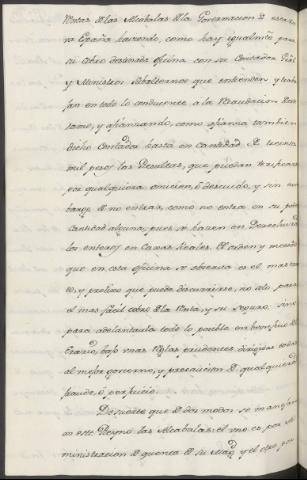 Rentas de las Alcabalas de la Governacion de esta nue
va España haviendo, como hay igualmte. para
su cobro drâmās oficina con su Contador Gral
y Ministros Subalternos que entienden y traba
jan en todo lo conducente a la Recaudacion
y afianzando, como afianza tambien
dicho Contador hasta en cantidad de
mil pesos las resultas, que puedan verificarse
por qualquiera omicion, ô descuido, y sin em
bargo de no entrar, como no entra en su poder
Cantidad alguna, pues se hacen en Derechura
los enteros en Caxas Reales. El orden y methodo
que en esta oficina se observa es el mas exac
to, y prolixo que puede discurrirse, no solo para
el mas facil cobro de la Renta, y su seguro, sino
para adelantarla todo lo posible en beneficio del
Erario, bajo unas Reglas prudentes dirigidas todas
al mejor govierno, y precaucion de qualquiera
fraude, ô perjuicio.
De suerte que de dos modos se manejan
en este Reyno las Alcabalas: el uno es, por Ad
ministracion de quenta de su Magd. y el otro por